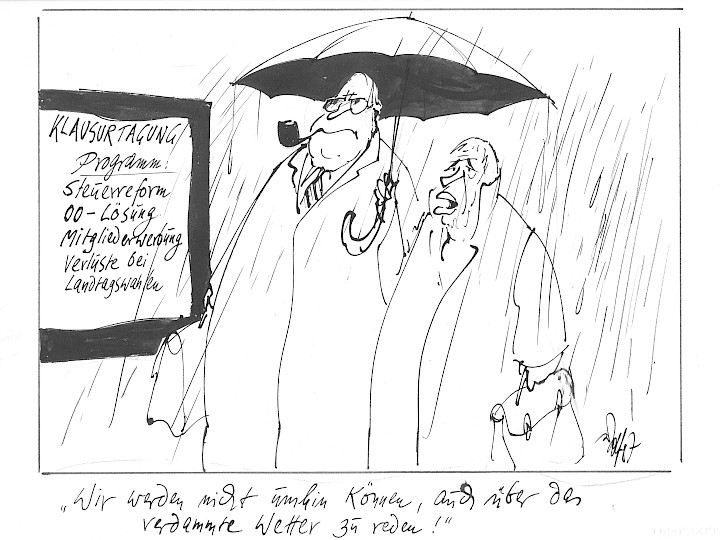 KLAUSURTAGUNG
Programm:
Steuerreform
00-Lösung
Mitgliederwerbung
Verluste bei
Landtagswahlen
„Wir werden nicht umhin können, auch über das
verdammte Wetter zu reden!"